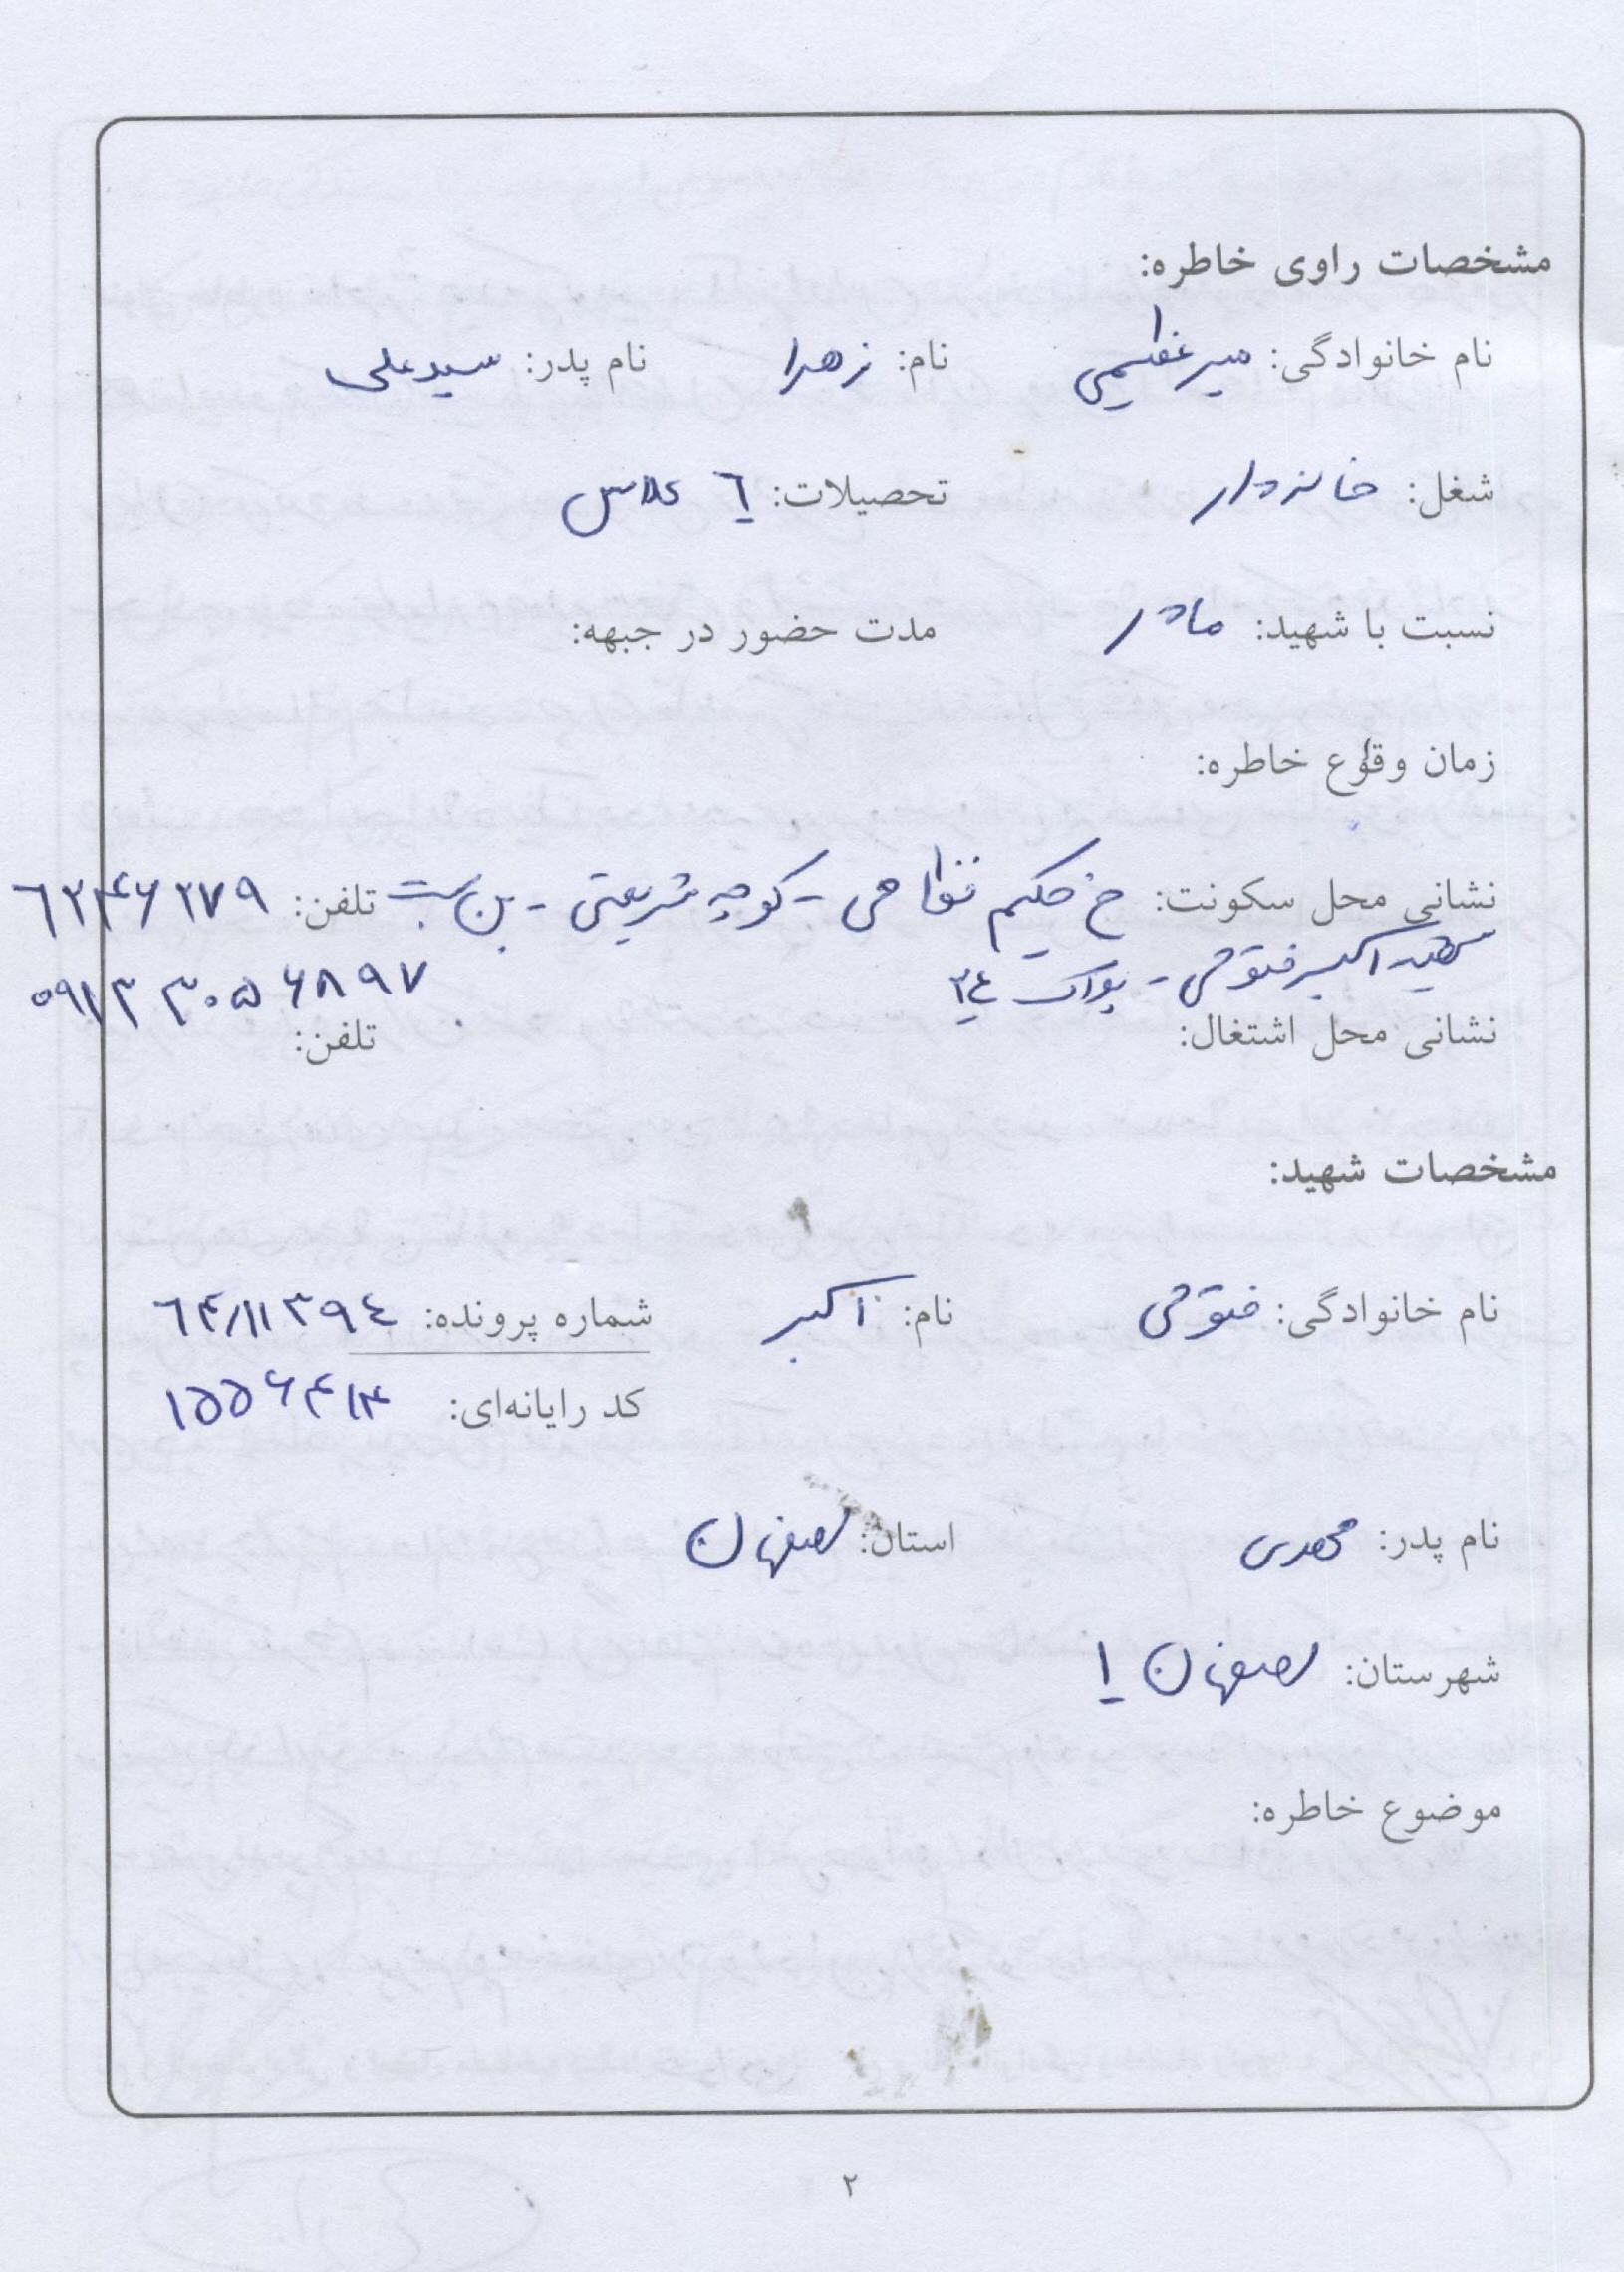 مشخصات راوی خاطره:
نام خانوادگی: میرعظیمی نام: زهرا نام پدر: سیدعلی
شغل: خانه‌دار تحصیلات: ٦ کلاس
نسبت با شهید: مادر مدت حضور در جبهه:
زمان وقوع خاطره:
نشانی محل سکونت: خ حکیم نظامی - کوچه شریعتی - بن بست تلفن:
شهید اکبر فتوحی - پلاک ۳٤
نشانی محل اشتغال: تلفن:
مشخصات شهید:
نام خانوادگی: فتوحی نام: اکبر شماره پرونده: ٦۴/۱۱۳۹٤
کد رایانه‌ای: ۱۵۵۶۴۱۴
نام پدر: مهدی استان: اصفهان
شهرستان: اصفهان ۱
موضوع خاطره:
۲